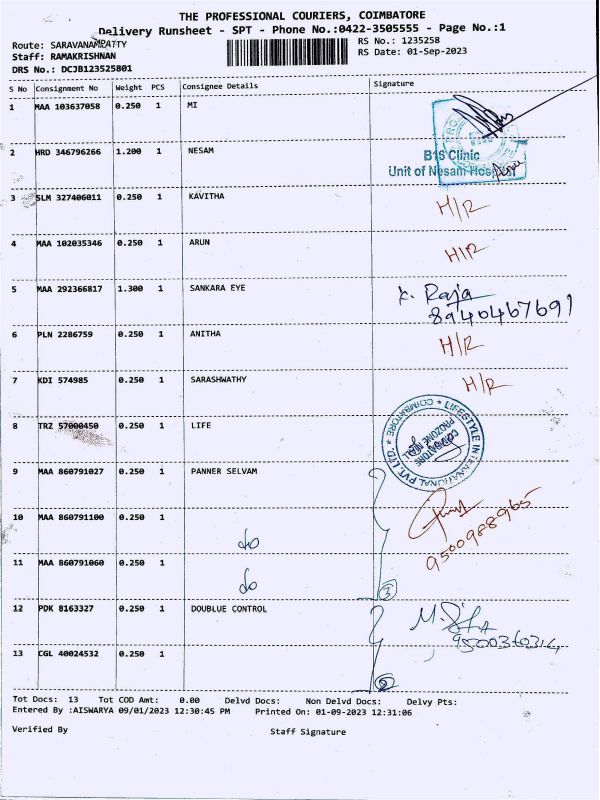 THE PROFESSIONAL COURIERS, COIMBATORE
Delivery Runsheet - SPT - Phone No.:0422-3505555 - Page No.:1
Route: SARAVANAMPATTY
Staff: RAMAKRISHNAN
DRS No.: DCJB123525801
RS No.: 1235258
RS Date: 01-Sep-2023
S No Consignment No Weight PCS Consignee Details Signature
1 MAA 103637058 0.250 1 MI
2 HRD 346796266 1.200 1 NESAM
B1S Clinic
Unit of Nesam Hospital
3 SLM 327406011 0.250 1 KAVITHA H/R
4 MAA 102035346 0.250 1 ARUN H/R
5 MAA 292366817 1.300 1 SANKARA EYE K. Raja
8940467691
6 PLN 2286759 0.250 1 ANITHA H/R
7 KDI 574985 0.250 1 SARASHWATHY H/R
8 TRZ 57000450 0.250 1 LIFE
LIFESTYLE INTERNATIONAL PVT. LTD. * COIMBATORE *
COIMBATORE
PROZONE MALL
9 MAA 860791027 0.250 1 PANNER SELVAM
10 MAA 860791100 0.250 1 do
9500988965
11 MAA 860791060 0.250 1 do
3
12 PDK 8163327 0.250 1 DOUBLUE CONTROL
13 CGL 40024532 0.250 1
2
Tot Docs: 13 Tot COD Amt: 0.00 Delvd Docs: Non Delvd Docs: Delvy Pts:
Entered By :AISWARYA 09/01/2023 12:30:45 PM Printed On: 01-09-2023 12:31:06
Verified By Staff Signature